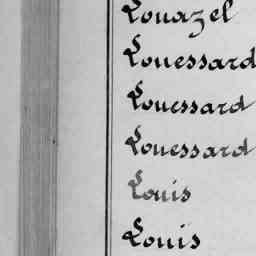 Louazel
Louessard
Louessard
Louessard
Louis
Louis